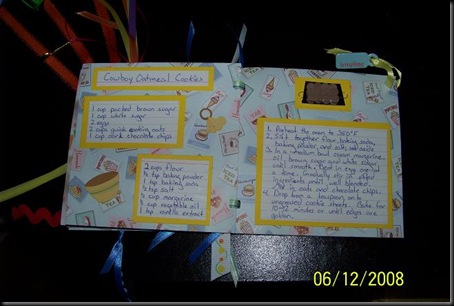 Cowboy Oatmeal Cookies
1 cup packed brown sugar
1 cup white sugar
2 eggs
2 cups quick cooking oats
1 cup dark chocolate chips
2 cups flour
baking powder
1 tsp baking soda
1/2 tsp salt
cup margarine
cup vegetable oil
1 tsp vanilla extract
1. Preheat the oven to 350°F
2. Sift together flour, baking soda,
baking powder, and salt; set aside.
3. In a medium bowl cream margarine,
oil, brown sugar and white sugar
until smooth. Beat in eggs one at
a time. Gradually stir in
ingredients until well blended.
in oats and chocolate chips.
4. Drop from a teaspoon onto
ungreased cookie sheets. Bake for
10-12 minutes or until edges are
golden.
06/12/2008